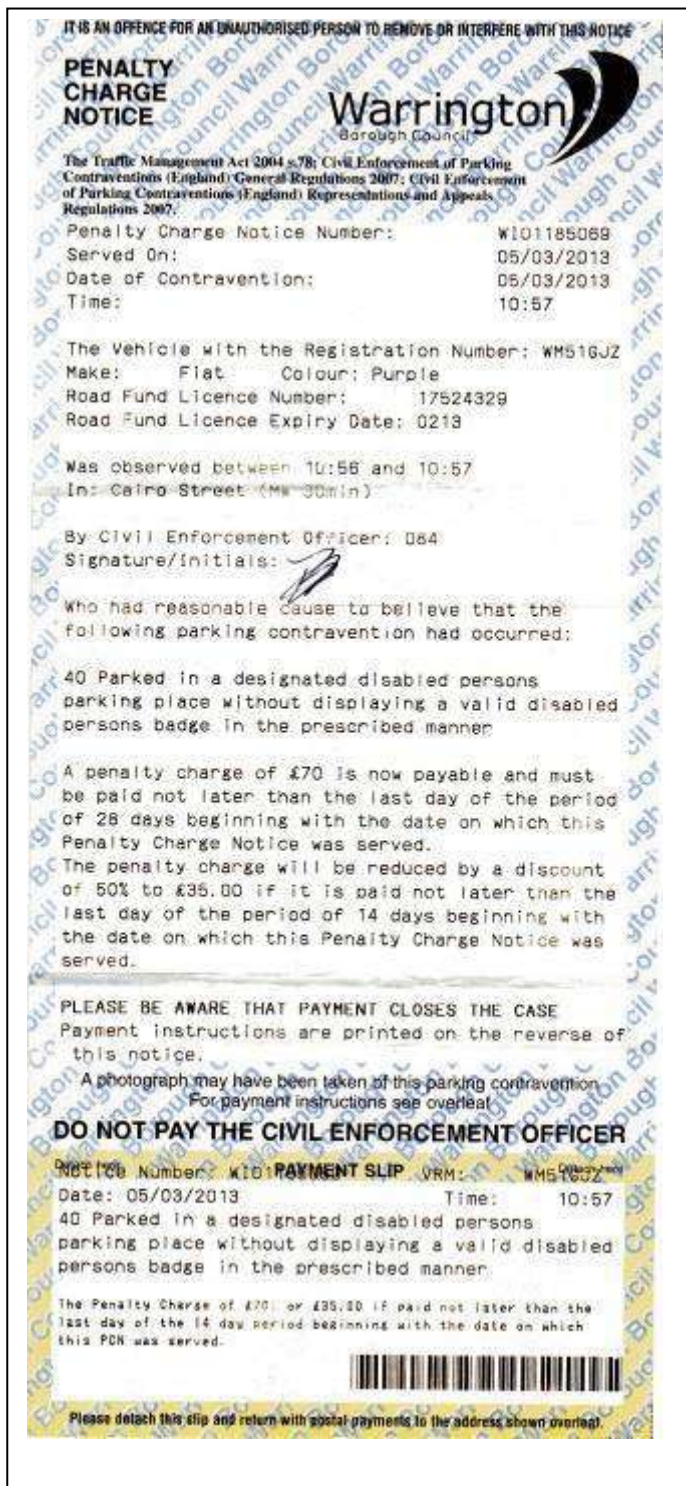 IT IS AN OFFENCE FOR AN UNAUTHORISED PERSON TO REMOVE OR INTERFERE WITH THIS NOTICE
PENALTY
CHARGE
NOTICE
Warrington
Borough Council
The Traffic Management Act 2004 s.78; Civil Enforcement of Parking
Contraventions (England) General Regulations 2007; Civil Enforcement
of Parking Contraventions (England) Representations and Appeals
Regulations 2007.
Penalty Charge Notice Number: WI01185069
Served On: 05/03/2013
Date of Contravention: 05/03/2013
Time: 10:57
The Vehicle with the Registration Number: WM51GJZ
Make: Fiat Colour: Purple
Road Fund Licence Number: 17524329
Road Fund Licence Expiry Date: 0213
Was observed between 10:56 and 10:57
In: Cairo Street (MW 30min)
By Civil Enforcement Officer: 084
Signature/Initials:
Who had reasonable cause to believe that the
following parking contravention had occurred:
40 Parked in a designated disabled persons
parking place without displaying a valid disabled
persons badge in the prescribed manner
A penalty charge of £70 is now payable and must
be paid not later than the last day of the period
of 28 days beginning with the date on which this
Penalty Charge Notice was served.
The penalty charge will be reduced by a discount
of 50% to £35.00 if it is paid not later than the
last day of the period of 14 days beginning with
the date on which this Penalty Charge Notice was
served.
PLEASE BE AWARE THAT PAYMENT CLOSES THE CASE
Payment instructions are printed on the reverse of
this notice.
A photograph may have been taken of this parking contravention
For payment instructions see overleaf
DO NOT PAY THE CIVIL ENFORCEMENT OFFICER
Notice Number: PAYMENT SLIP VRM: WM51GJZ
Date: 05/03/2013 Time: 10:57
40 Parked in a designated disabled persons
parking place without displaying a valid disabled
persons badge in the prescribed manner
The Penalty Charge of £70, or £35.00 if paid not later than the
last day of the 14 day period beginning with the date on which
this PCN was served.
Please detach this slip and return with postal payments to the address shown overleaf.